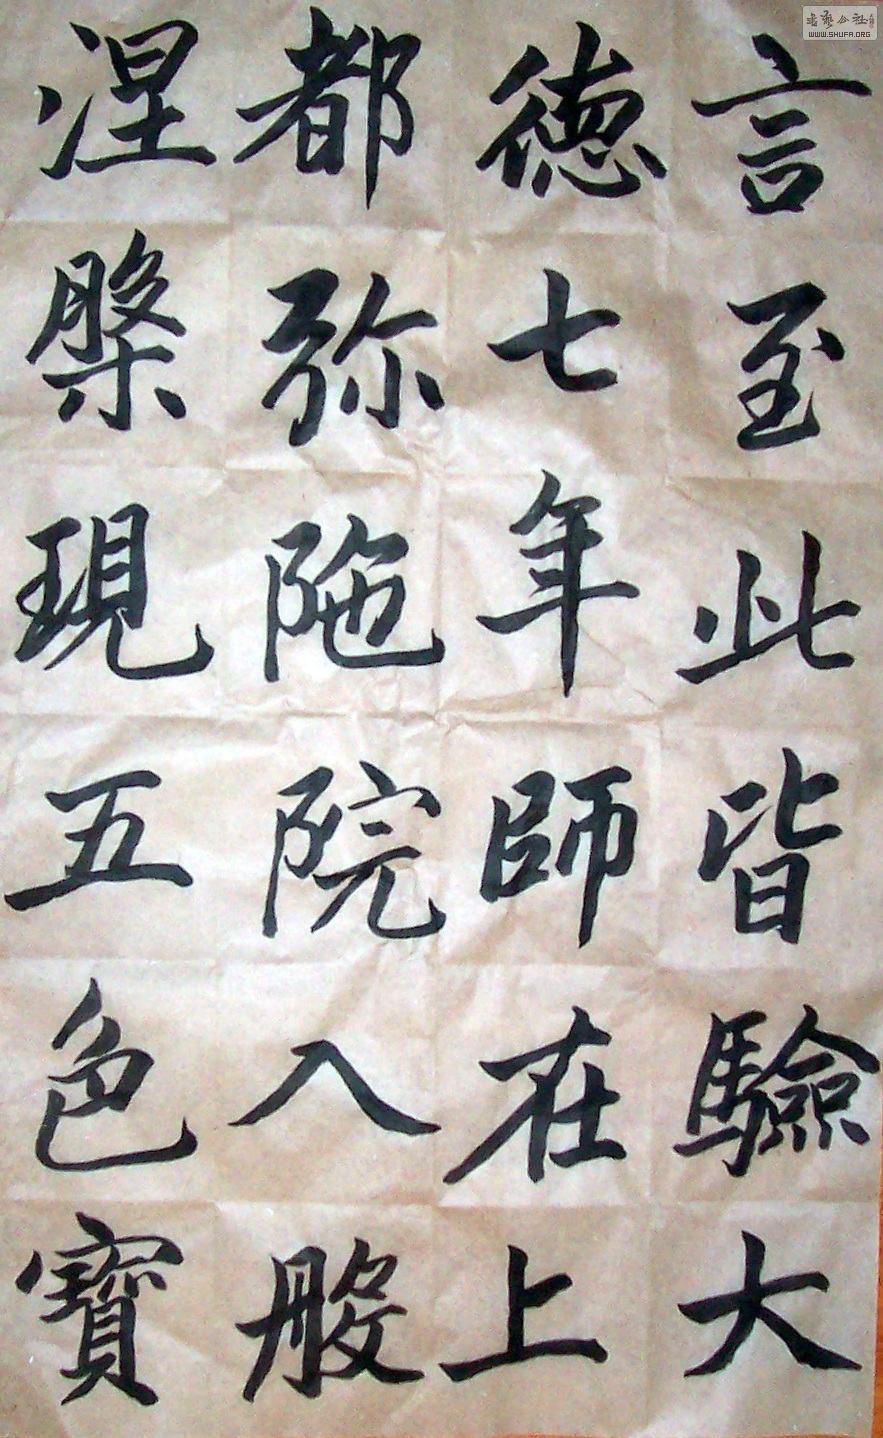 言至此皆驗大
德七年師在上
都弥陁院入般
涅槃現五色寶
書藝公社
WWW.SHUFA.ORG